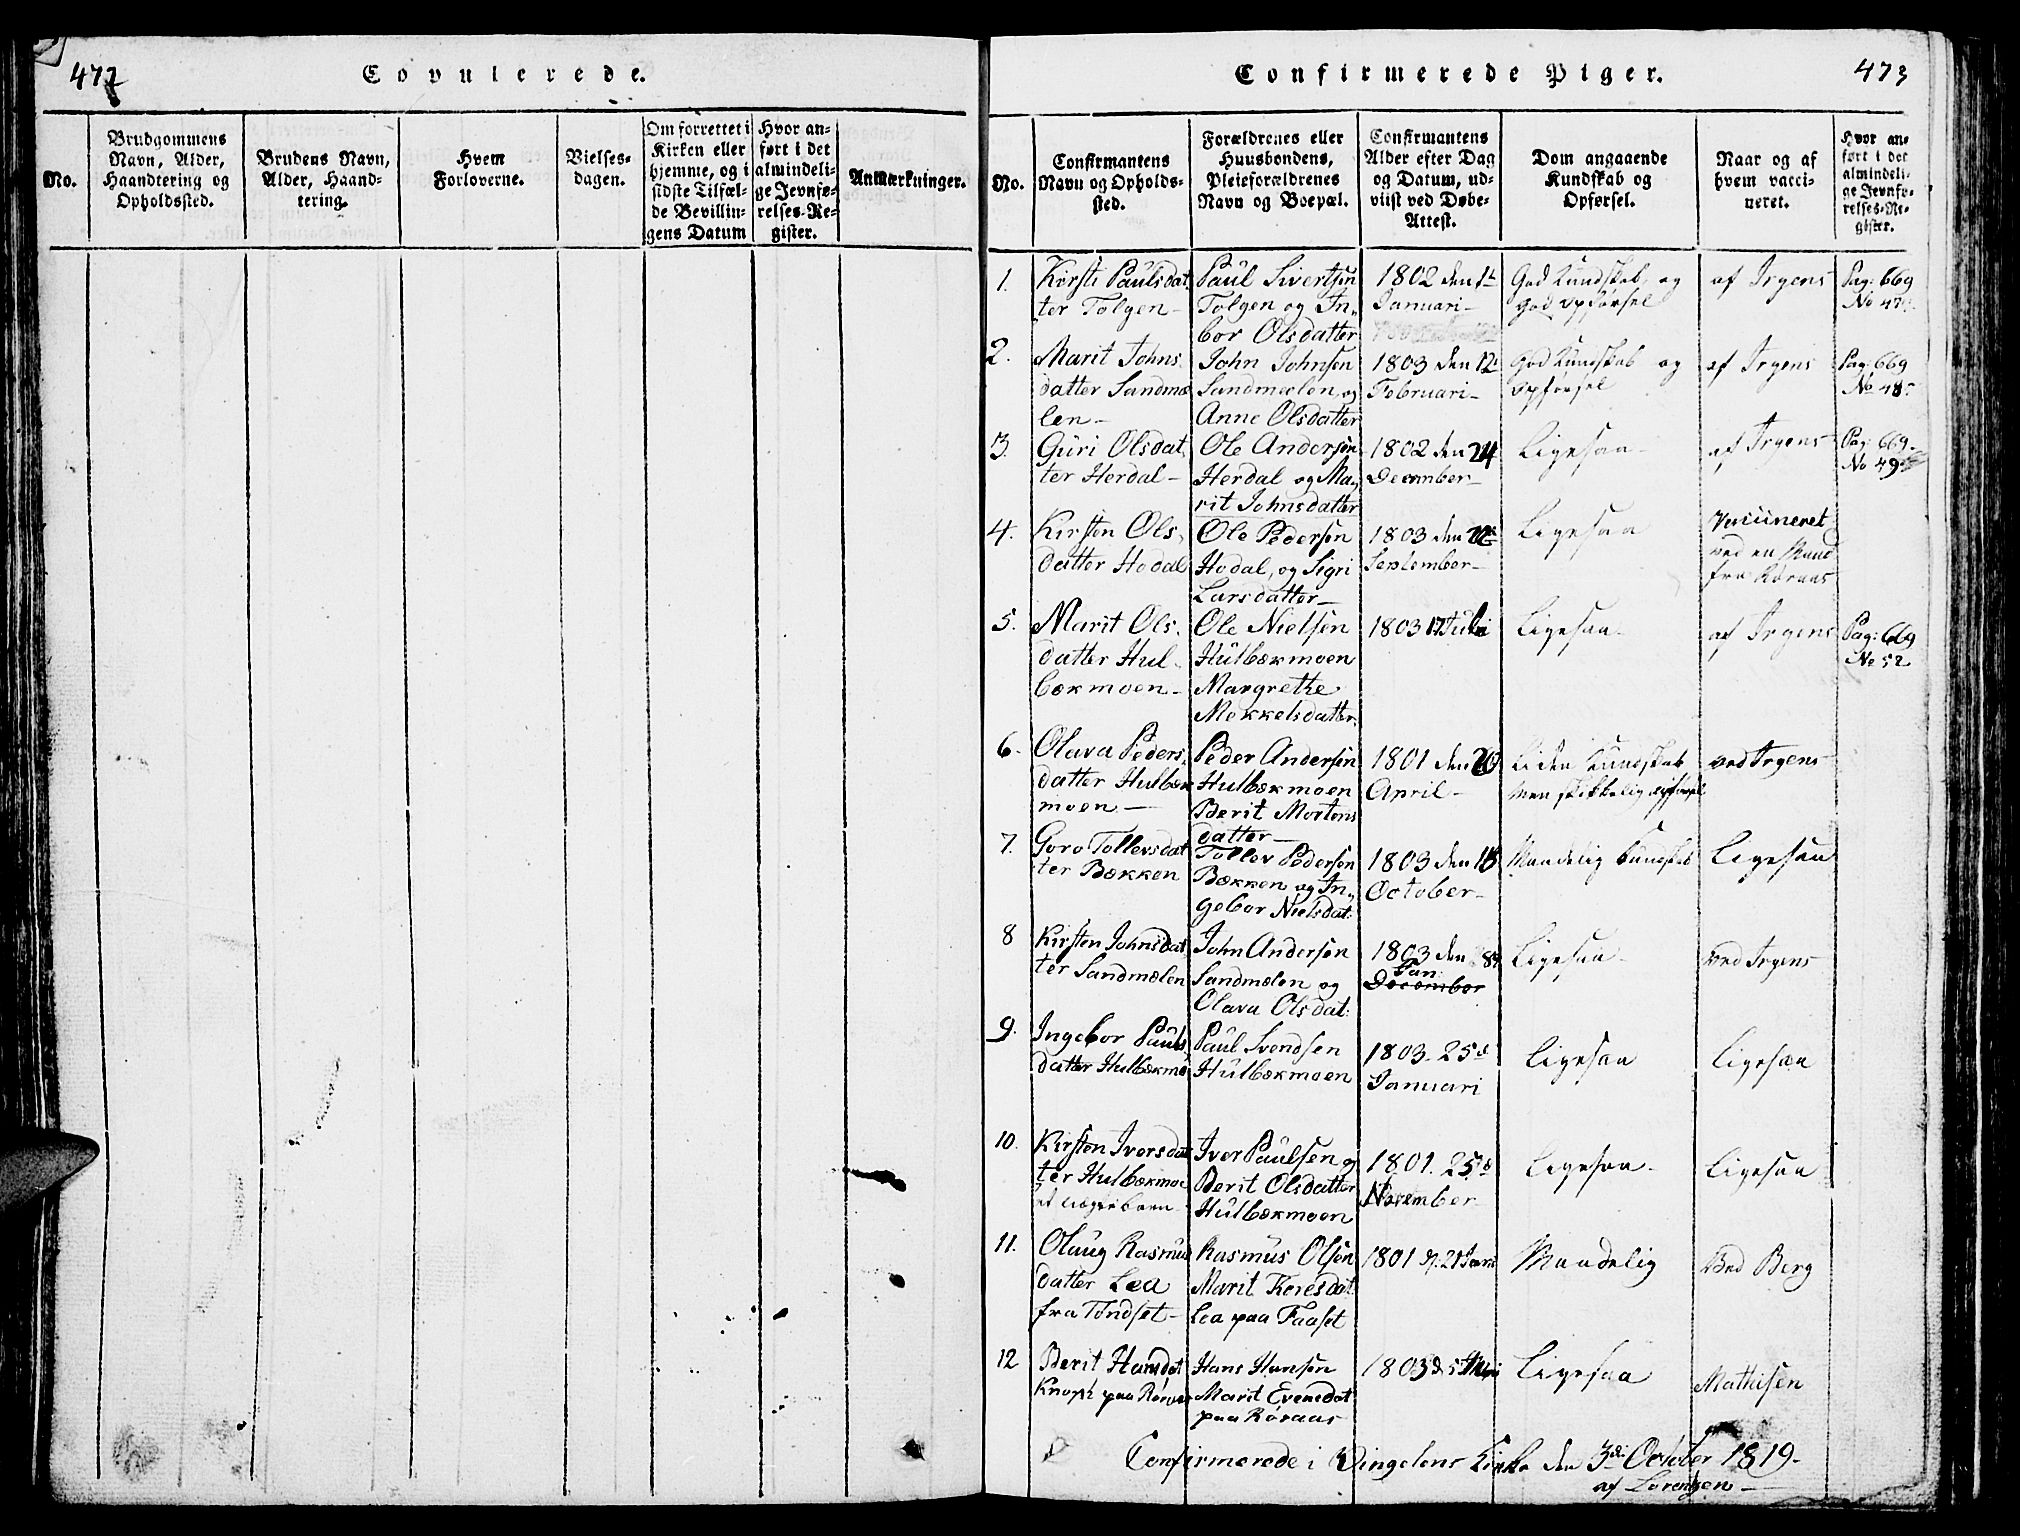 472
Copulerede.
No.
Brudgommens
Navn, Alder,
Haandtering og
Opholdssted.
Brudens Navn,
Alder, Haand-
tering.
Hvem
Forloverne.
Vielses-
dagen.
Om forrettet i
Kirken eller
hjemme, og i
sidste Tilfæl-
de Bevillin-
gens Datum
Hvor an-
ført i det
almindeli-
ge Jevnfø-
relses-Re-
gister.
Anmærkninger.
Confirmerede Piger.
473
No.
Confirmantens
Navn og Opholds-
sted.
Forældrenes eller
Huusbondens,
Pleieforældrenes
Navn og Boepæl.
Confirmantens
Alder efter Dag
og Datum, ud-
viist ved Døbe-
Attest.
Dom angaaende
Kundskab og
Opførsel.
Naar og af
hvem vacci-
neret.
Hvor an-
ført i det
almindeli-
ge Jevnfø-
relses-Re-
gister.
1.
Kirsti Paulsdat
ter Tolgen-
Paul Sivertsøn
Tolgen og In-
bor Olsdatter
1802 den 1te
Januari-
God Kundskab, og
god opførsel
af Irgens
Pag: 669
No 47.
2.
Marit Johns
datter Sandmæ
len-
John Johnsøn
Sandmælen, og
Anne Olsdatter
1803 den 12te
Februari-
God Kundskab og
opførsel
af Irgens
Pag: 669
No 48.
3.
Guri Olsdat,
ter Herdal-
Ole Andersøn
Herdal og Ma,
rit Johnsdatter
1802 den 24
December-
Ligesaa-
af Irgens
Pag: 669.
No 49.
4.
Kirsten Ols,
datter Hodal
Ole Pedersøn
Hodal, og Sigri
Larsdatter-
1803 den
September-
Ligesaa
Vacineret
ved en Mand
fra Røraas
5.
Marit Ols.
datter Hul-
bækmoen-
Ole Nielsen
Hulbækmoen
Margrethe
Mekkelsdatter.
1803 17 Juli
Ligesaa-
af Irgens
Pag: 669
No 52
6.
Olava Peders,
datter Hulbæk
moen-
Peder Andersøn
Hulbækmoen
Berit Mortens
datter-
1801 den 20
April-
Liden Kundskab
men skikkelig opførsel
ved Irgens
7.
Goro Tollevsdat
ter Bækken
Tollev Pedersøn
Bækken og In,
gebor Nielsdat:
1803 den 18
October-
Maadelig Kundskab
Ligesaa
8
Kirsten Johnsdat
ter Sandmælen
John Andersøn
Sandmælen og
Olava Olsdat:
1803 den 8de
Jan:
December
Ligesaa-
ved Irgens
9.
Ingebor Pauls
datter Hulbækmo
Paul Svendsen
Hulbækmoen
1803. 25de
Januari
Ligesaa
Ligesaa
10.
Kirsten Iversdat
ter Hulbækmoe
et uægte barn
Iver Paulsen og
Berit Olsdatter
Hulbækmoen
1801. 25de
November
Ligesaa-
Ligesaa
11.
Olaug Rasmus
datter Lea
fra Tøndset-
Rasmus Olsøn
Marit Keresdat
Lea paa Faaset
1801 d. 21
Maadelig
Ved Berg
12
Berit Hansdat
Knoph paa Røraas
Hans Hansen
Marit Evensdat
paa Røraas
1803 d 5
Ligesaa
Mathisen
Confirmerede i Vingelens Kirke den 3die October 1819.
af Lorentzen-